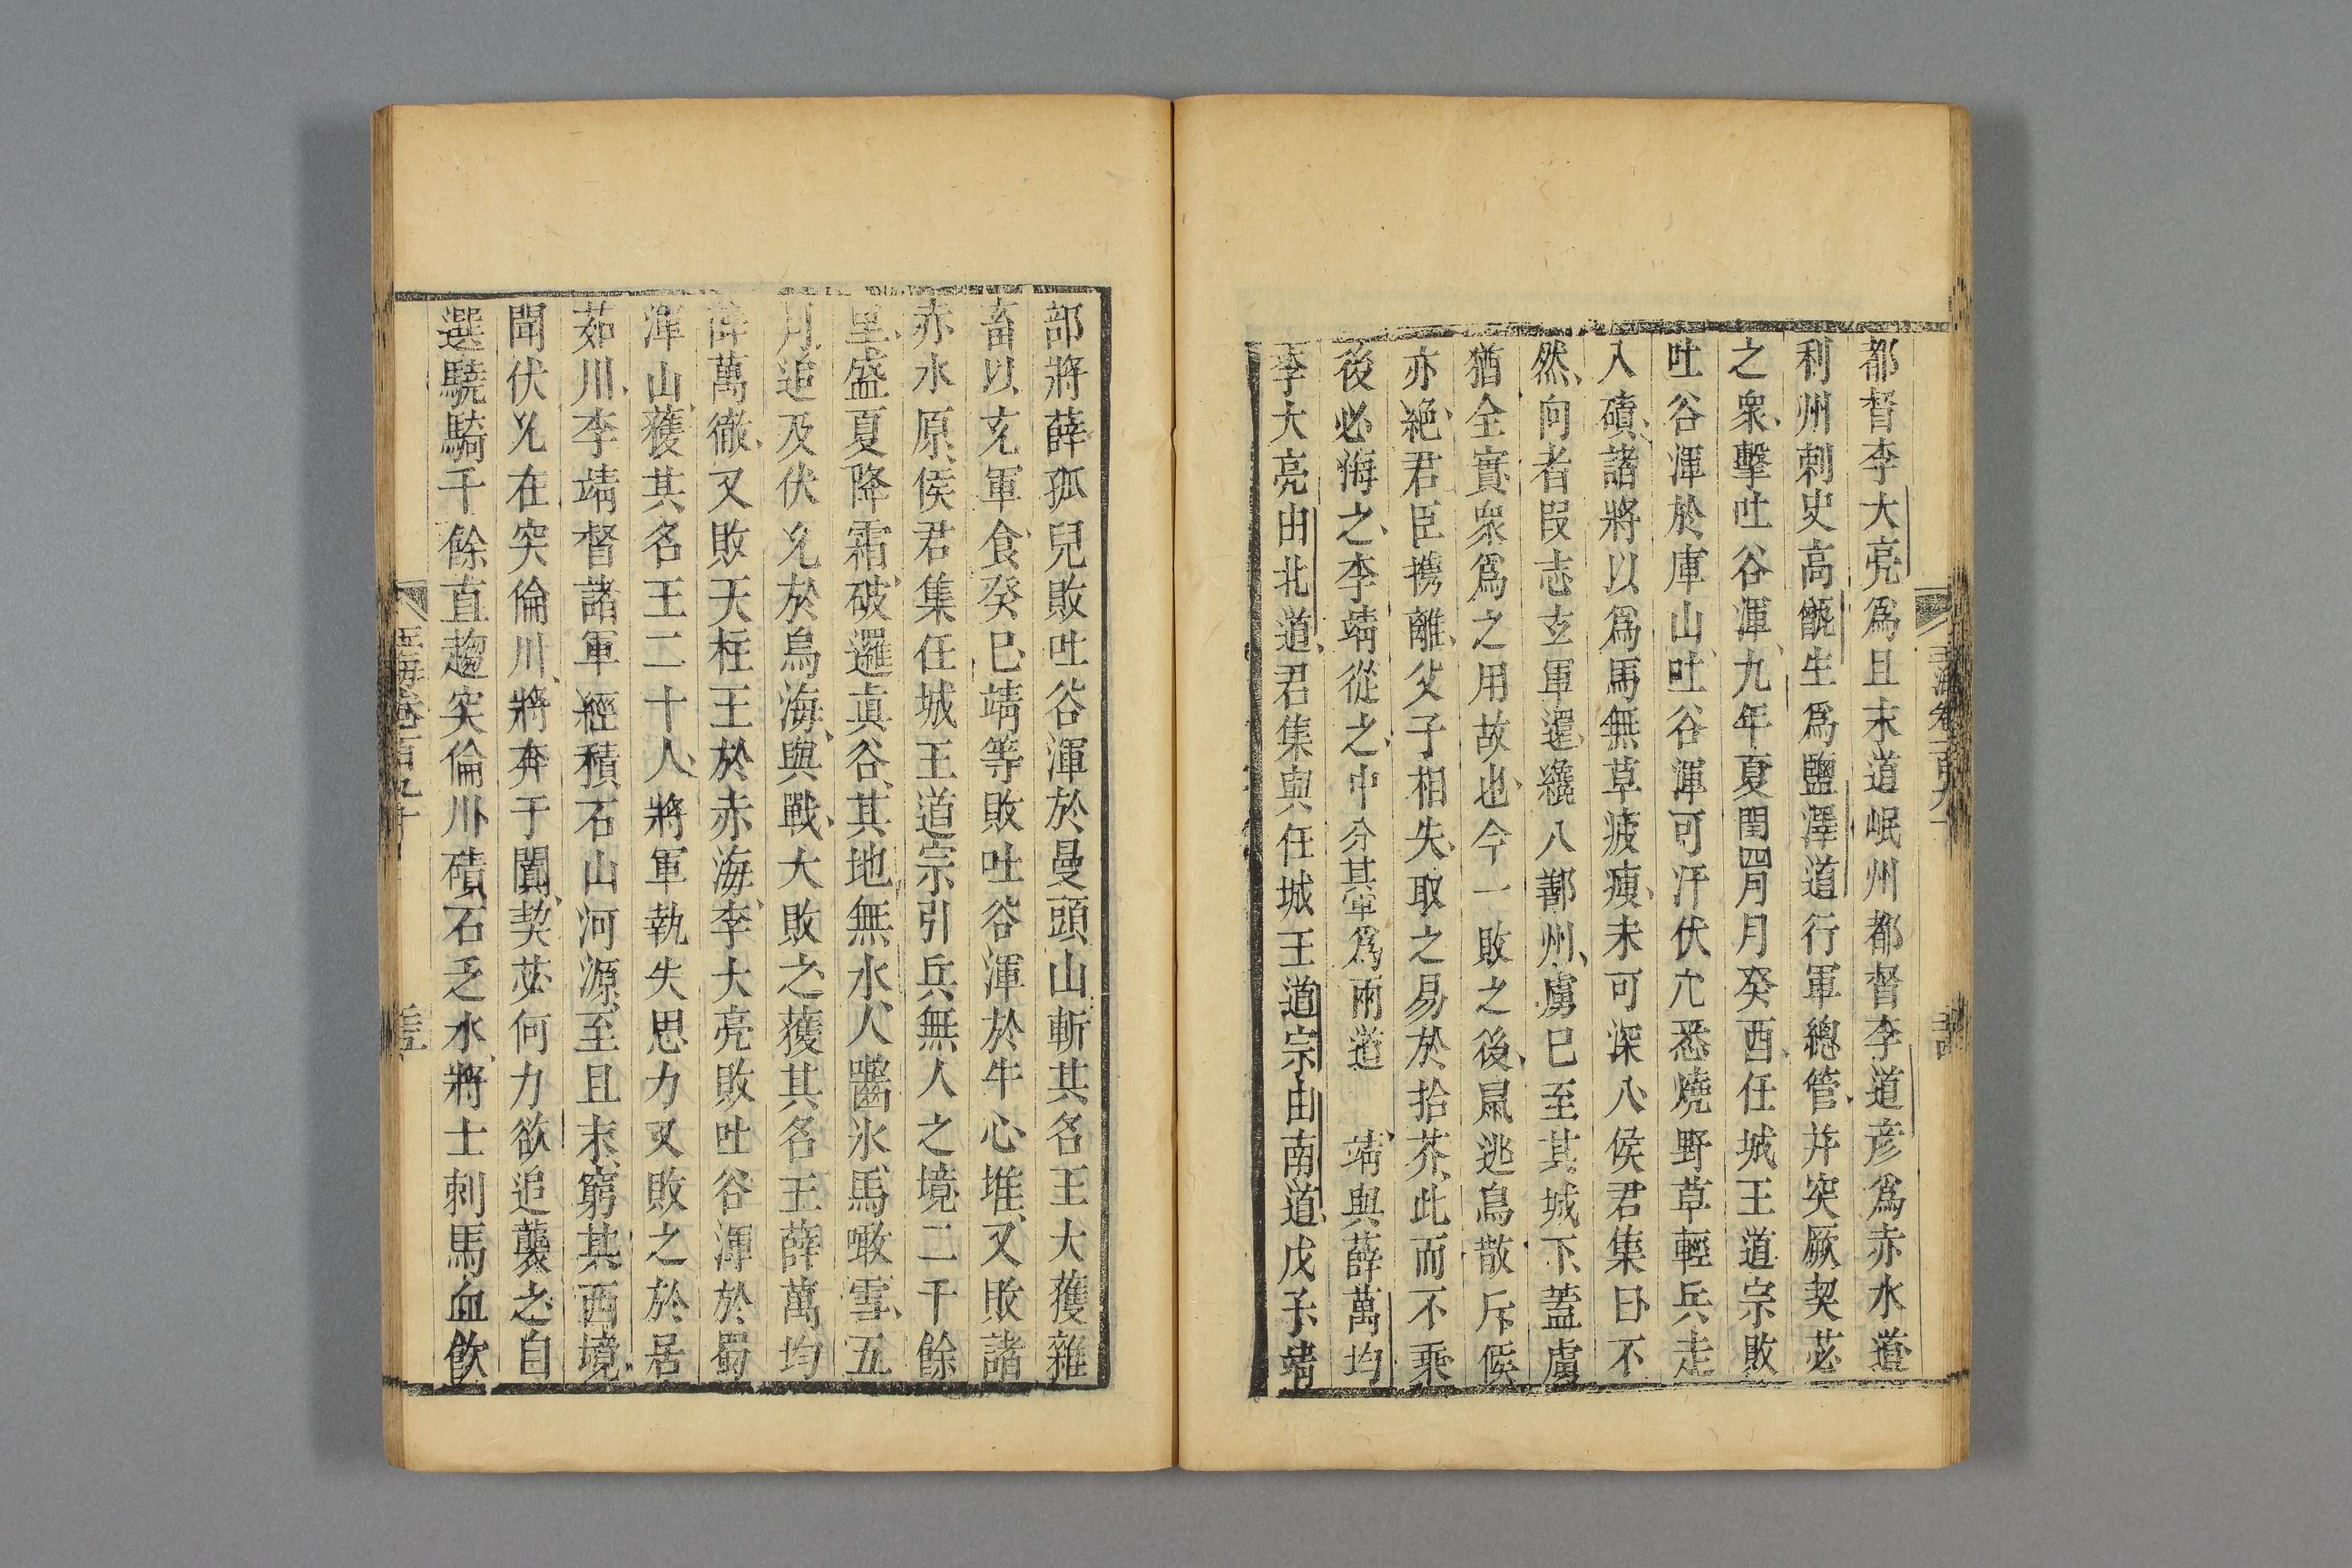 都督李大亮爲且末道岷州都督李道彦爲赤水道
利州刺史高甑生爲鹽澤道行軍總管并突厥契苾
之衆擊吐谷渾九年夏閏四月月癸酉任城王道宗敗
吐谷渾於庫山吐谷渾可汗伏允悉燒野草輕兵走
入磧諸將以爲馬無草疲瘦未可深入侯君集曰不
然向者段志玄軍還纔八鄯州虜已至其城下蓋虜
猶全實衆爲之用故也今一敗之後鼠逃鳥散斥候
亦絶君臣携離父子相失取之易於拾芥此而不乘
後必悔之李靖從之中分其軍爲兩道靖與薛萬均
李大亮由北道君集與任城王道宗由南道戊子靖
部將薛孤兒敗吐谷渾於曼頭山斬其名王大獲雜
畜以充軍食癸巳靖等敗吐谷渾於牛心堆又敗諸
赤水原侯君集任城王道宗引兵無人之境二千餘
里盛夏降霜破邏真谷其地無水人齧氷馬噉雪五
月追及伏允於烏海與戰大敗之獲其名王薛萬均
薛萬徹又敗天柱王於赤海李大亮敗吐谷渾於蜀
渾山獲其名王二十人將軍執失思力又敗之於居
茹川李靖督諸軍經積石山河源至且末窮其西境
聞伏允在突倫川將奔于闐契苾何力欲追襲之自
選驍騎千餘直趨突倫川磧石乏水將士刺馬血飲
玉海卷百九十一